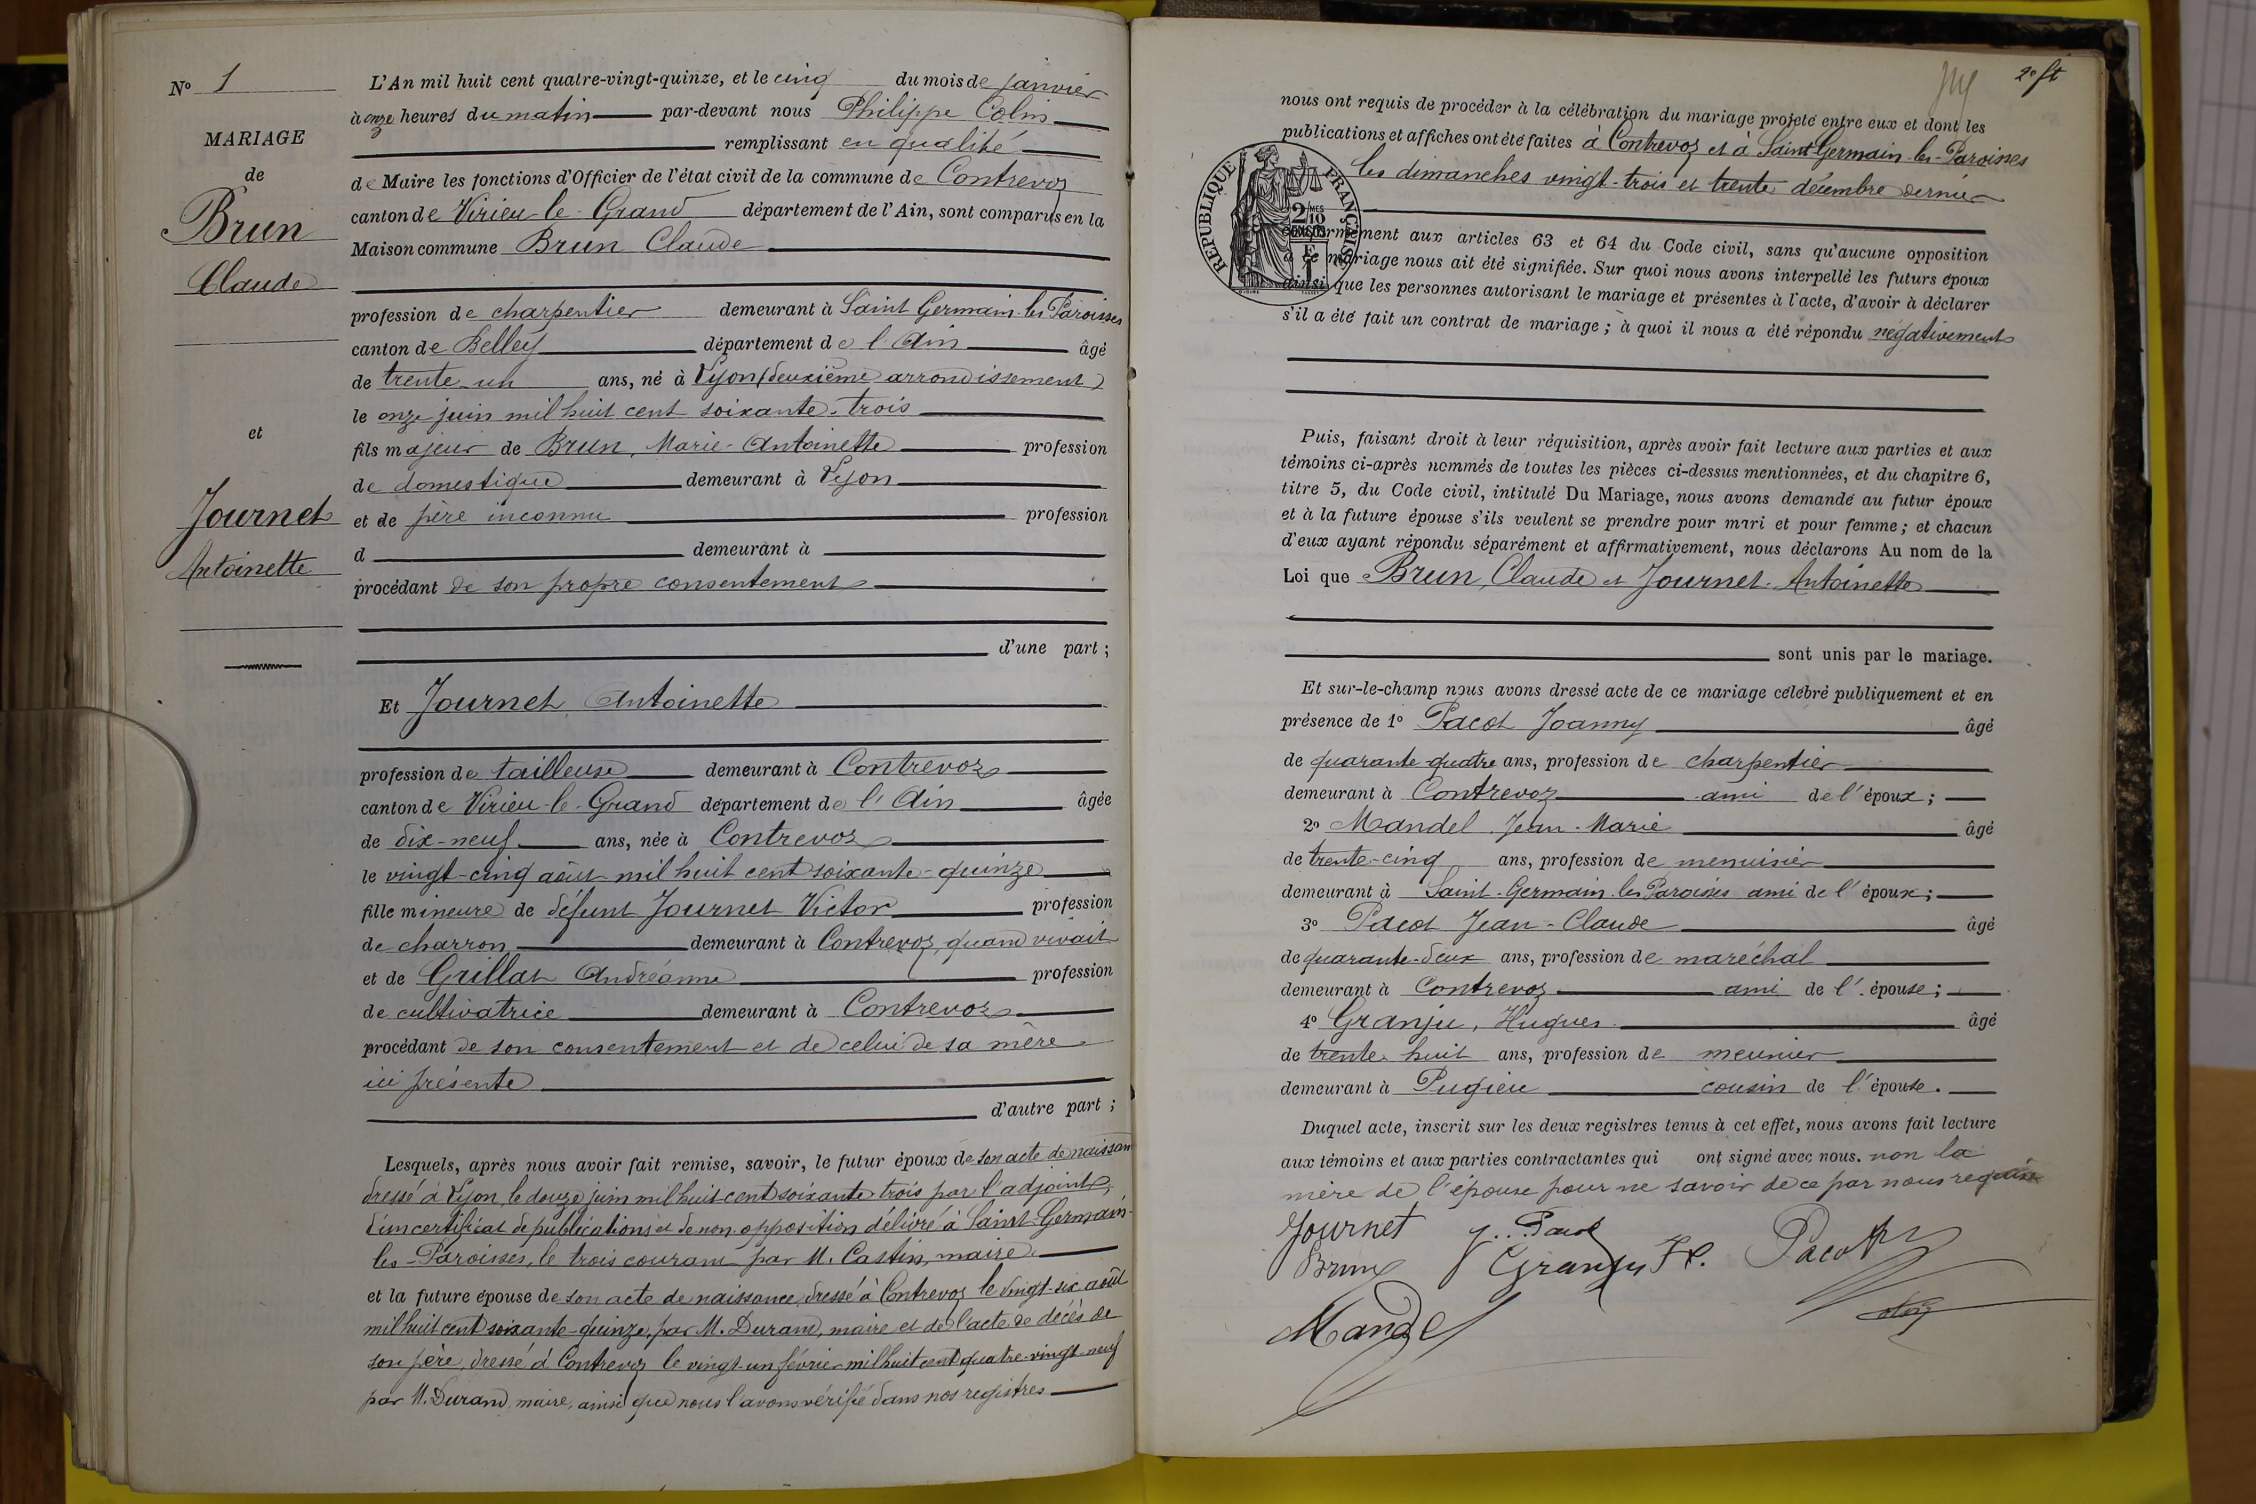 N° 1
MARIAGE
de
Brun
Claude
et
Journet
Antoinette
L'An mil huit cent quatre-vingt-quinze, et le cinq du mois de janvier
à onze heures du matin par-devant nous Philippe Colin
remplissant en qualité
de Maire les fonctions d'Officier de l'état civil de la commune de Contrevoz
canton de Virieu-le-Grand département de l'Ain, sont comparus en la
Maison commune Brun Claude
profession de charpentier demeurant à Saint Germain-les-Paroisses
canton de Belley département de l'Ain âgé
de trente-un ans, né à Lyon (deuxième arrondissement)
le onze juin mil huit cent soixante-trois
fils majeur de Brun, Marie-Antoinette profession
de domestique demeurant à Lyon
et de père inconnu profession
d demeurant à
procédant de son propre consentement
d'une part ;
Et Journet Antoinette
profession de tailleuse demeurant à Contrevoz
canton de Virieu-le-Grand département de l'Ain âgée
de dix-neuf ans, née à Contrevoz
le vingt-cinq août mil huit cent soixante-quinze
fille mineure de défunt Journet Victor profession
de charron demeurant à Contrevoz, quand vivait
et de Grillat Andréanne profession
de cultivatrice demeurant à Contrevoz
procédant de son consentement et de celui de sa mère
ici présente
d'autre part ;
Lesquels, après nous avoir fait remise, savoir, le futur époux de son acte de naissan
dressé à Lyon, le douze juin mil huit cent soixante trois par l'adjoint,
d'un certificat de publications et de non-opposition délivré à Saint-Germain-
les-Paroisses, le trois courant par M. Castin, maire
et la future épouse de son acte de naissance, dressé à Contrevoz le vingt-six août
mil huit cent soixante-quinze, par M. Durand, maire et de l'acte de décès de
son père, dressé à Contrevoz le vingt-un février mil huit cent quatre-vingt-neuf
par M. Durand, maire, ainsi que nous l'avons vérifié dans nos registres
2e ft
nous ont requis de procéder à la célébration du mariage projeté entre eux et dont les
publications et affiches ont été faites à Contrevoz et à Saint Germain-les-Paroisses
les dimanches vingt-trois et trente décembre dernier
RÉPUBLIQUE FRANÇAISE
2/10
conformément aux articles 63 et 64 du Code civil, sans qu'aucune opposition
à ce mariage nous ait été signifiée. Sur quoi nous avons interpellé les futurs époux
ainsi que les personnes autorisant le mariage et présentes à l'acte, d'avoir à déclarer
s'il a été fait un contrat de mariage ; à quoi il nous a été répondu négativement
Puis, faisant droit à leur réquisition, après avoir fait lecture aux parties et aux
témoins ci-après nommés de toutes les pièces ci-dessus mentionnées, et du chapitre 6,
titre 5, du Code civil, intitulé Du Mariage, nous avons demandé au futur époux
et à la future épouse s'ils veulent se prendre pour mari et pour femme ; et chacun
d'eux ayant répondu séparément et affirmativement, nous déclarons Au nom de la
Loi que Brun, Claude et Journet Antoinette
sont unis par le mariage.
Et sur-le-champ nous avons dressé acte de ce mariage célébré publiquement et en
présence de 1° Pacot Joanny âgé
de quarante-quatre ans, profession de charpentier
demeurant à Contrevoz ami de l'époux ;
2° Mandel Jean-Marie âgé
de trente-cinq ans, profession de menuisier
demeurant à Saint-Germain-les-Paroisses ami de l'époux ;
3° Pacot Jean-Claude âgé
de quarante-deux ans, profession de maréchal
demeurant à Contrevoz ami de l'épouse ;
4° Granju, Hugues âgé
de trente huit ans, profession de meunier
demeurant à Pugieu cousin de l'épouse.
Duquel acte, inscrit sur les deux registres tenus à cet effet, nous avons fait lecture
aux témoins et aux parties contractantes qui ont signé avec nous. non la
mère de l'épouse pour ne savoir de ce par nous requise
Journet J. Pacot Pacot
Brun Granju H.
Mandel Colin